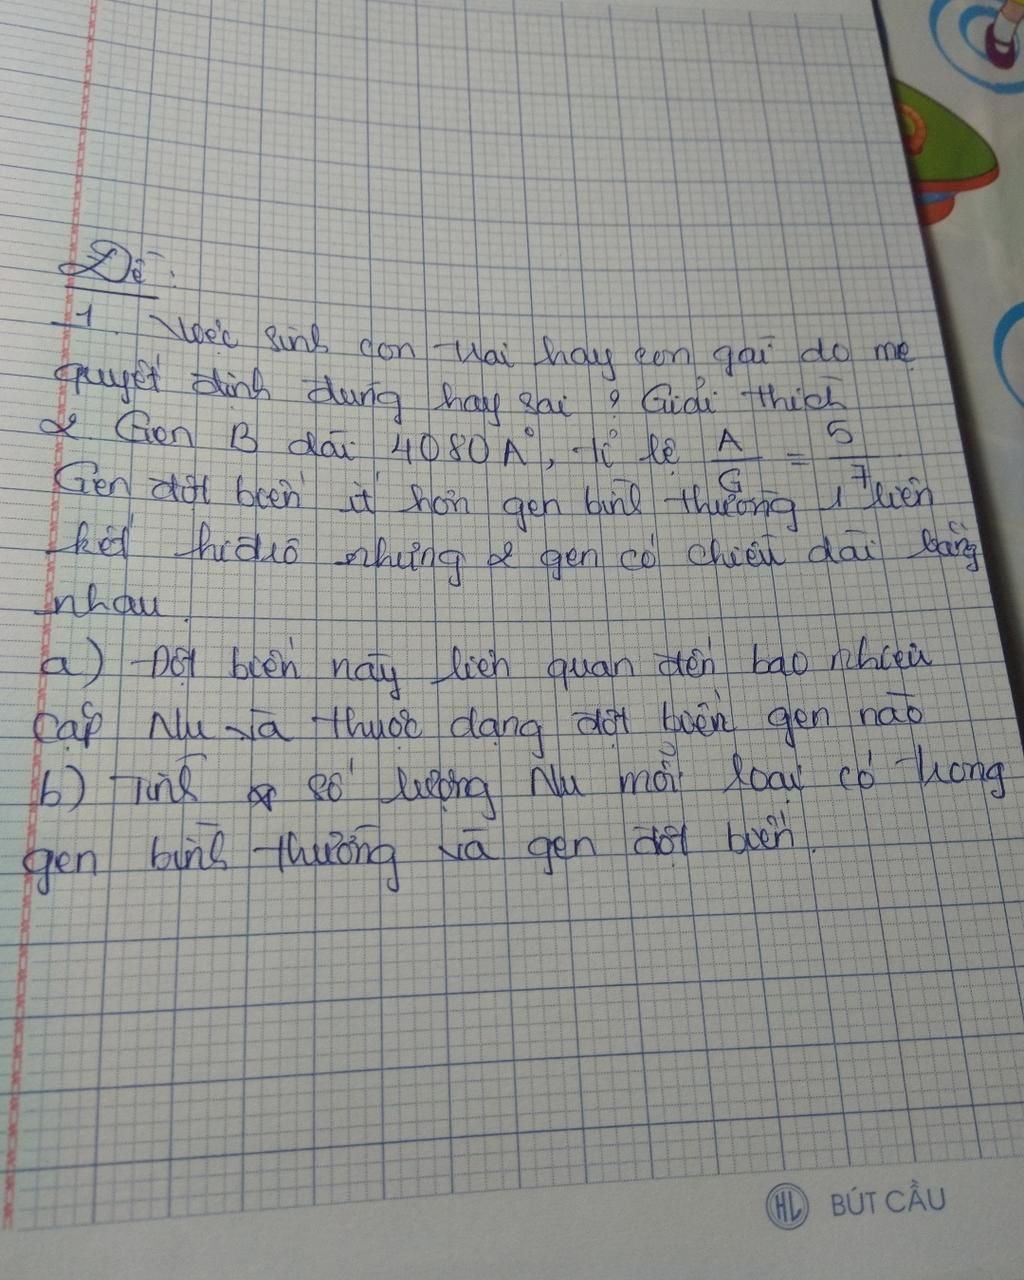 Đề:
1. Việc sinh con trai hay con gái do mẹ
quyết định đúng hay sai? Giải thích
2. Gen B dài 4080A°, tỉ lệ A/G = 5/7
Gen đột biến ít hơn gen bình thường 1 liên
kết hiđrô nhưng 2 gen có chiều dài bằng
nhau
a) Đột biến này liên quan đến bao nhiêu
cặp Nu và thuộc dạng đột biến gen nào
b) Tính số lượng Nu mỗi loại có trong
gen bình thường và gen đột biến.
HL BÚT CẦU